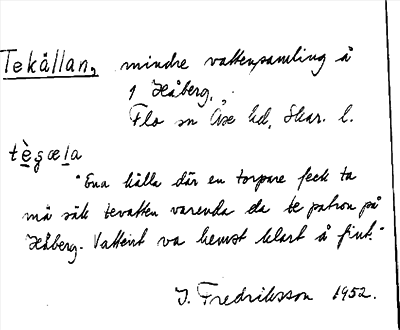 Tekällan, mindre vattensamling å
1 Håberg.
Flo sn Åse hd, Skar. l.
tègœla
"Ena källa där en torpare feck ta
må säk tevatten varenda da te patron på
Håberg. Vattent va hemst klart å fint."
J. Fredriksson 1952.